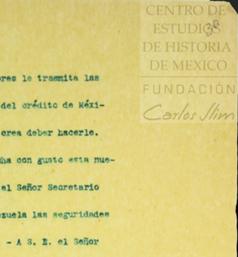 CENTRO DE
ESTUDIOS
DE HISTORIA
DE MEXICO
FUNDACIÓN
Carlos Slim
ores le trasmita las
del crédito de Méxi-
crea deber hacerle.
ha con gusto esta nue-
el Señor Secretario
zuela las seguridades
- A S. E. el Señor